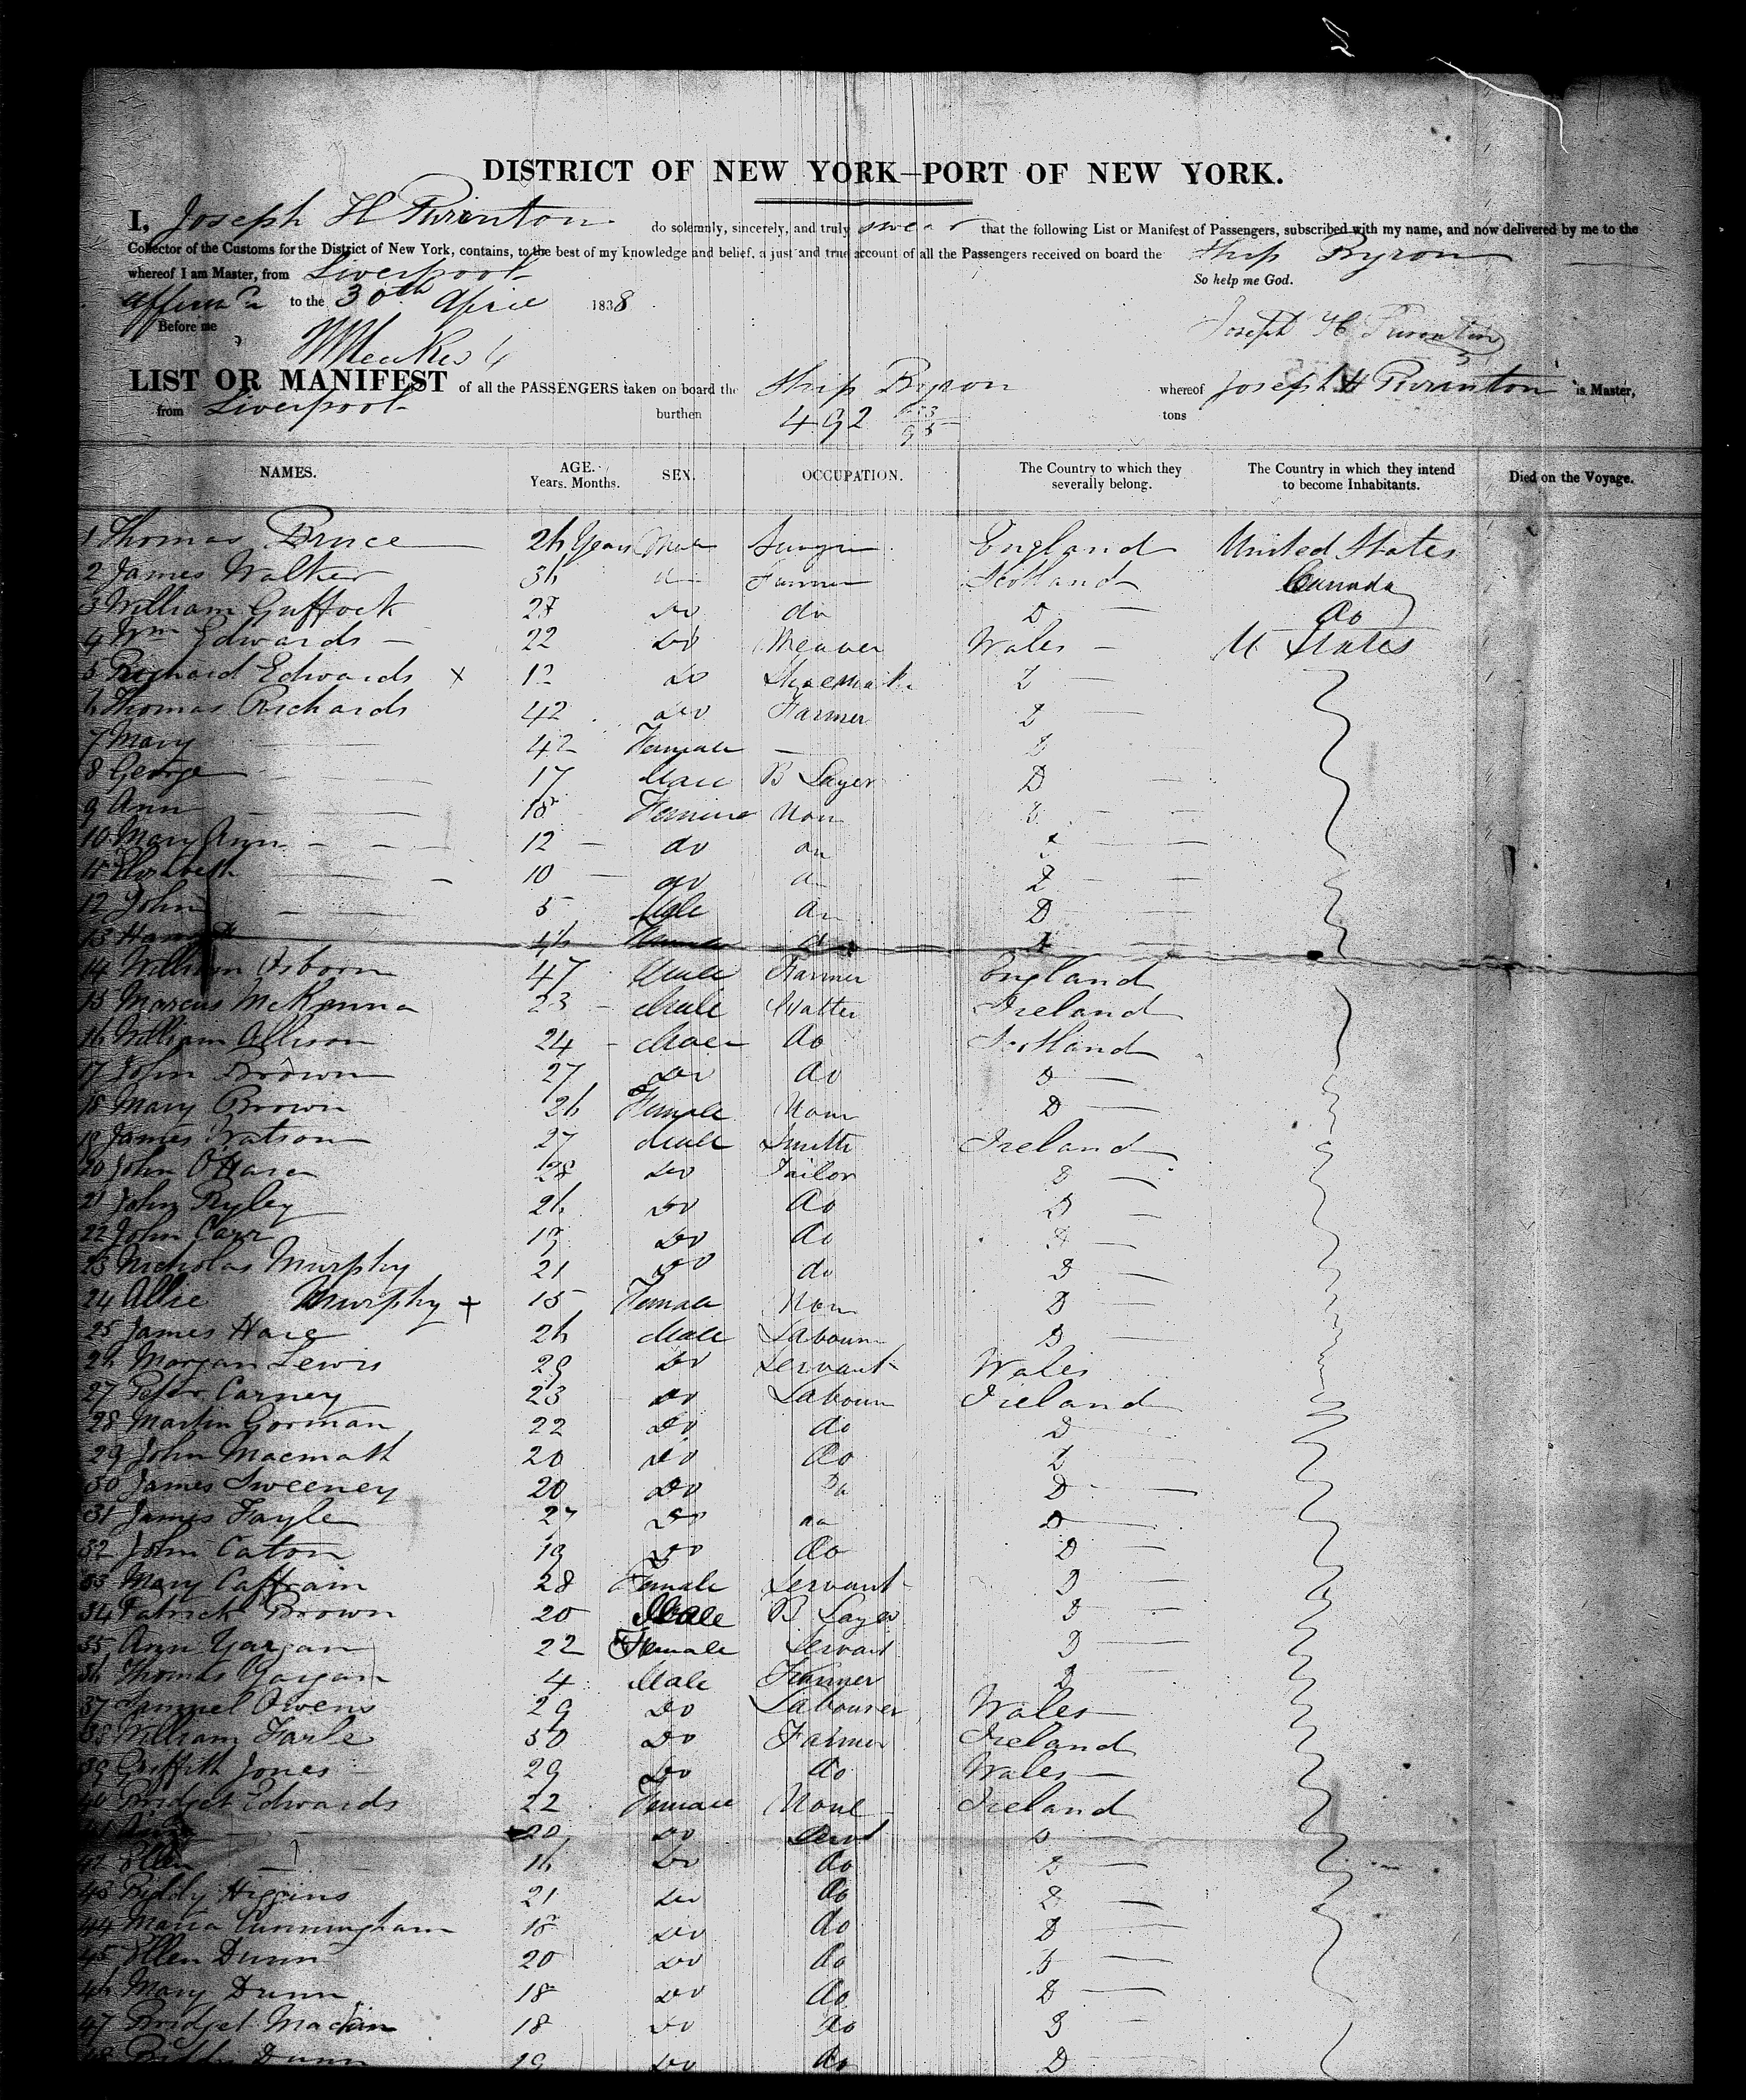 DISTRICT OF NEW YORK—PORT OF NEW YORK.
I, Joseph H Purinton do solemnly, sincerely, and truly swear that the following List or Manifest of Passengers, subscribed with my name, and now delivered by me to the
Collector of the Customs for the District of New York, contains, to the best of my knowledge and belief, a just and true account of all the Passengers received on board the Ship Byron
whereof I am Master, from Liverpool So help me God.
to the 30th April 1838
Before me Joseph H Purinton
LIST OR MANIFEST of all the PASSENGERS taken on board the Ship Byron whereof Joseph H Purinton is Master,
from Liverpool burthen 492 tons
NAMES. AGE. Years. Months. SEX. OCCUPATION. The Country to which they severally belong. The Country in which they intend to become Inhabitants. Died on the Voyage.
1 Thomas Bruce 26 Years Male England United States
2 James Walker 36 Farmer Scotland Canada
3 William Guffock 27 Do do D Do
4 Wm Edwards 22 Do Weaver Wales U States
5 Richard Edwards x Do D
6 Thomas Richards 42 Do Farmer D
7 Mary 42 Female — D
8 George 17 Male B Layer D
9 Ann 18 Female Non D
10 Mary Ann 12 do do
11 Elizabeth 10 do do D
12 John 5 Male do D
13
14 William Osborn 47 Male Farmer England
15 Marcus McKenna 23 Male Hatter Ireland
16 William Allison 24 Male do Scotland
17 John Brown 27 Do do D
18 Mary Brown 26 Female None D
19 James Watson 27 Male Smith Ireland
20 John O'Hara 28 Do Tailor D
21 John Ryley 26 Do do D
22 John Carr 19 Do do D
23 Nicholas Murphy 21 Do do D
24 Allie Murphy + 15 Female Non D
25 James Hare 26 Male Labourer D
26 Morgan Lewis 29 Do Servant Wales
27 Peter Carney 23 Do Labour Ireland
28 Martin Gorman 22 Do do D
29 John Macmath 20 Do do D
30 James Sweeney 20 Do Do D
31 James Fayle 27 Do do D
32 John Caton 19 Do do D
33 Mary Caffrain 28 Female Servant D
34 Patrick Brown 20 Male B Layer D
35 Ann Yargan 22 Female Servant D
36 Thomas Yargan 4 Male Farmer D
37 Samuel Owens 29 Do Labourer Wales
38 William Farle 50 Do Farmer Ireland
39 Griffith Jones 29 Do do Wales
40 Bridget Edwards 22 Female None Ireland
41 20 Do Servt D
42 Ellen 16 Do do D
43 Biddy Higgins 21 Do do D
44 Maria Cunningham 18 Do do D
45 Ellen Dunn 20 Do do D
46 Mary Dunn 18 Do do D
47 Bridget 18 Do do D
48 Biddy Dunn 19 Do do D